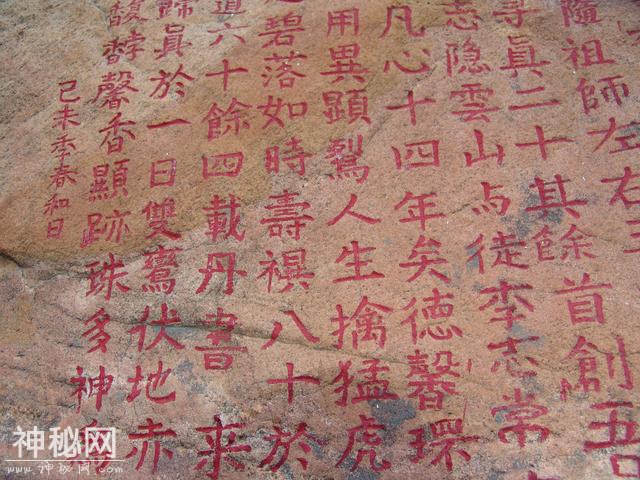 隨祖師左右三
尋真二十其餘首創吾
志隐雲山与徒李志常
凡心十四年矣德馨環
用異顕人生擒猛虎
碧落如時壽禩八十於
道六十餘四載丹書来
歸眞於一日雙鸞伏地赤
馥馞馨香顯跡珠多神
己未季春和日
神秘网
www.神秘网.com